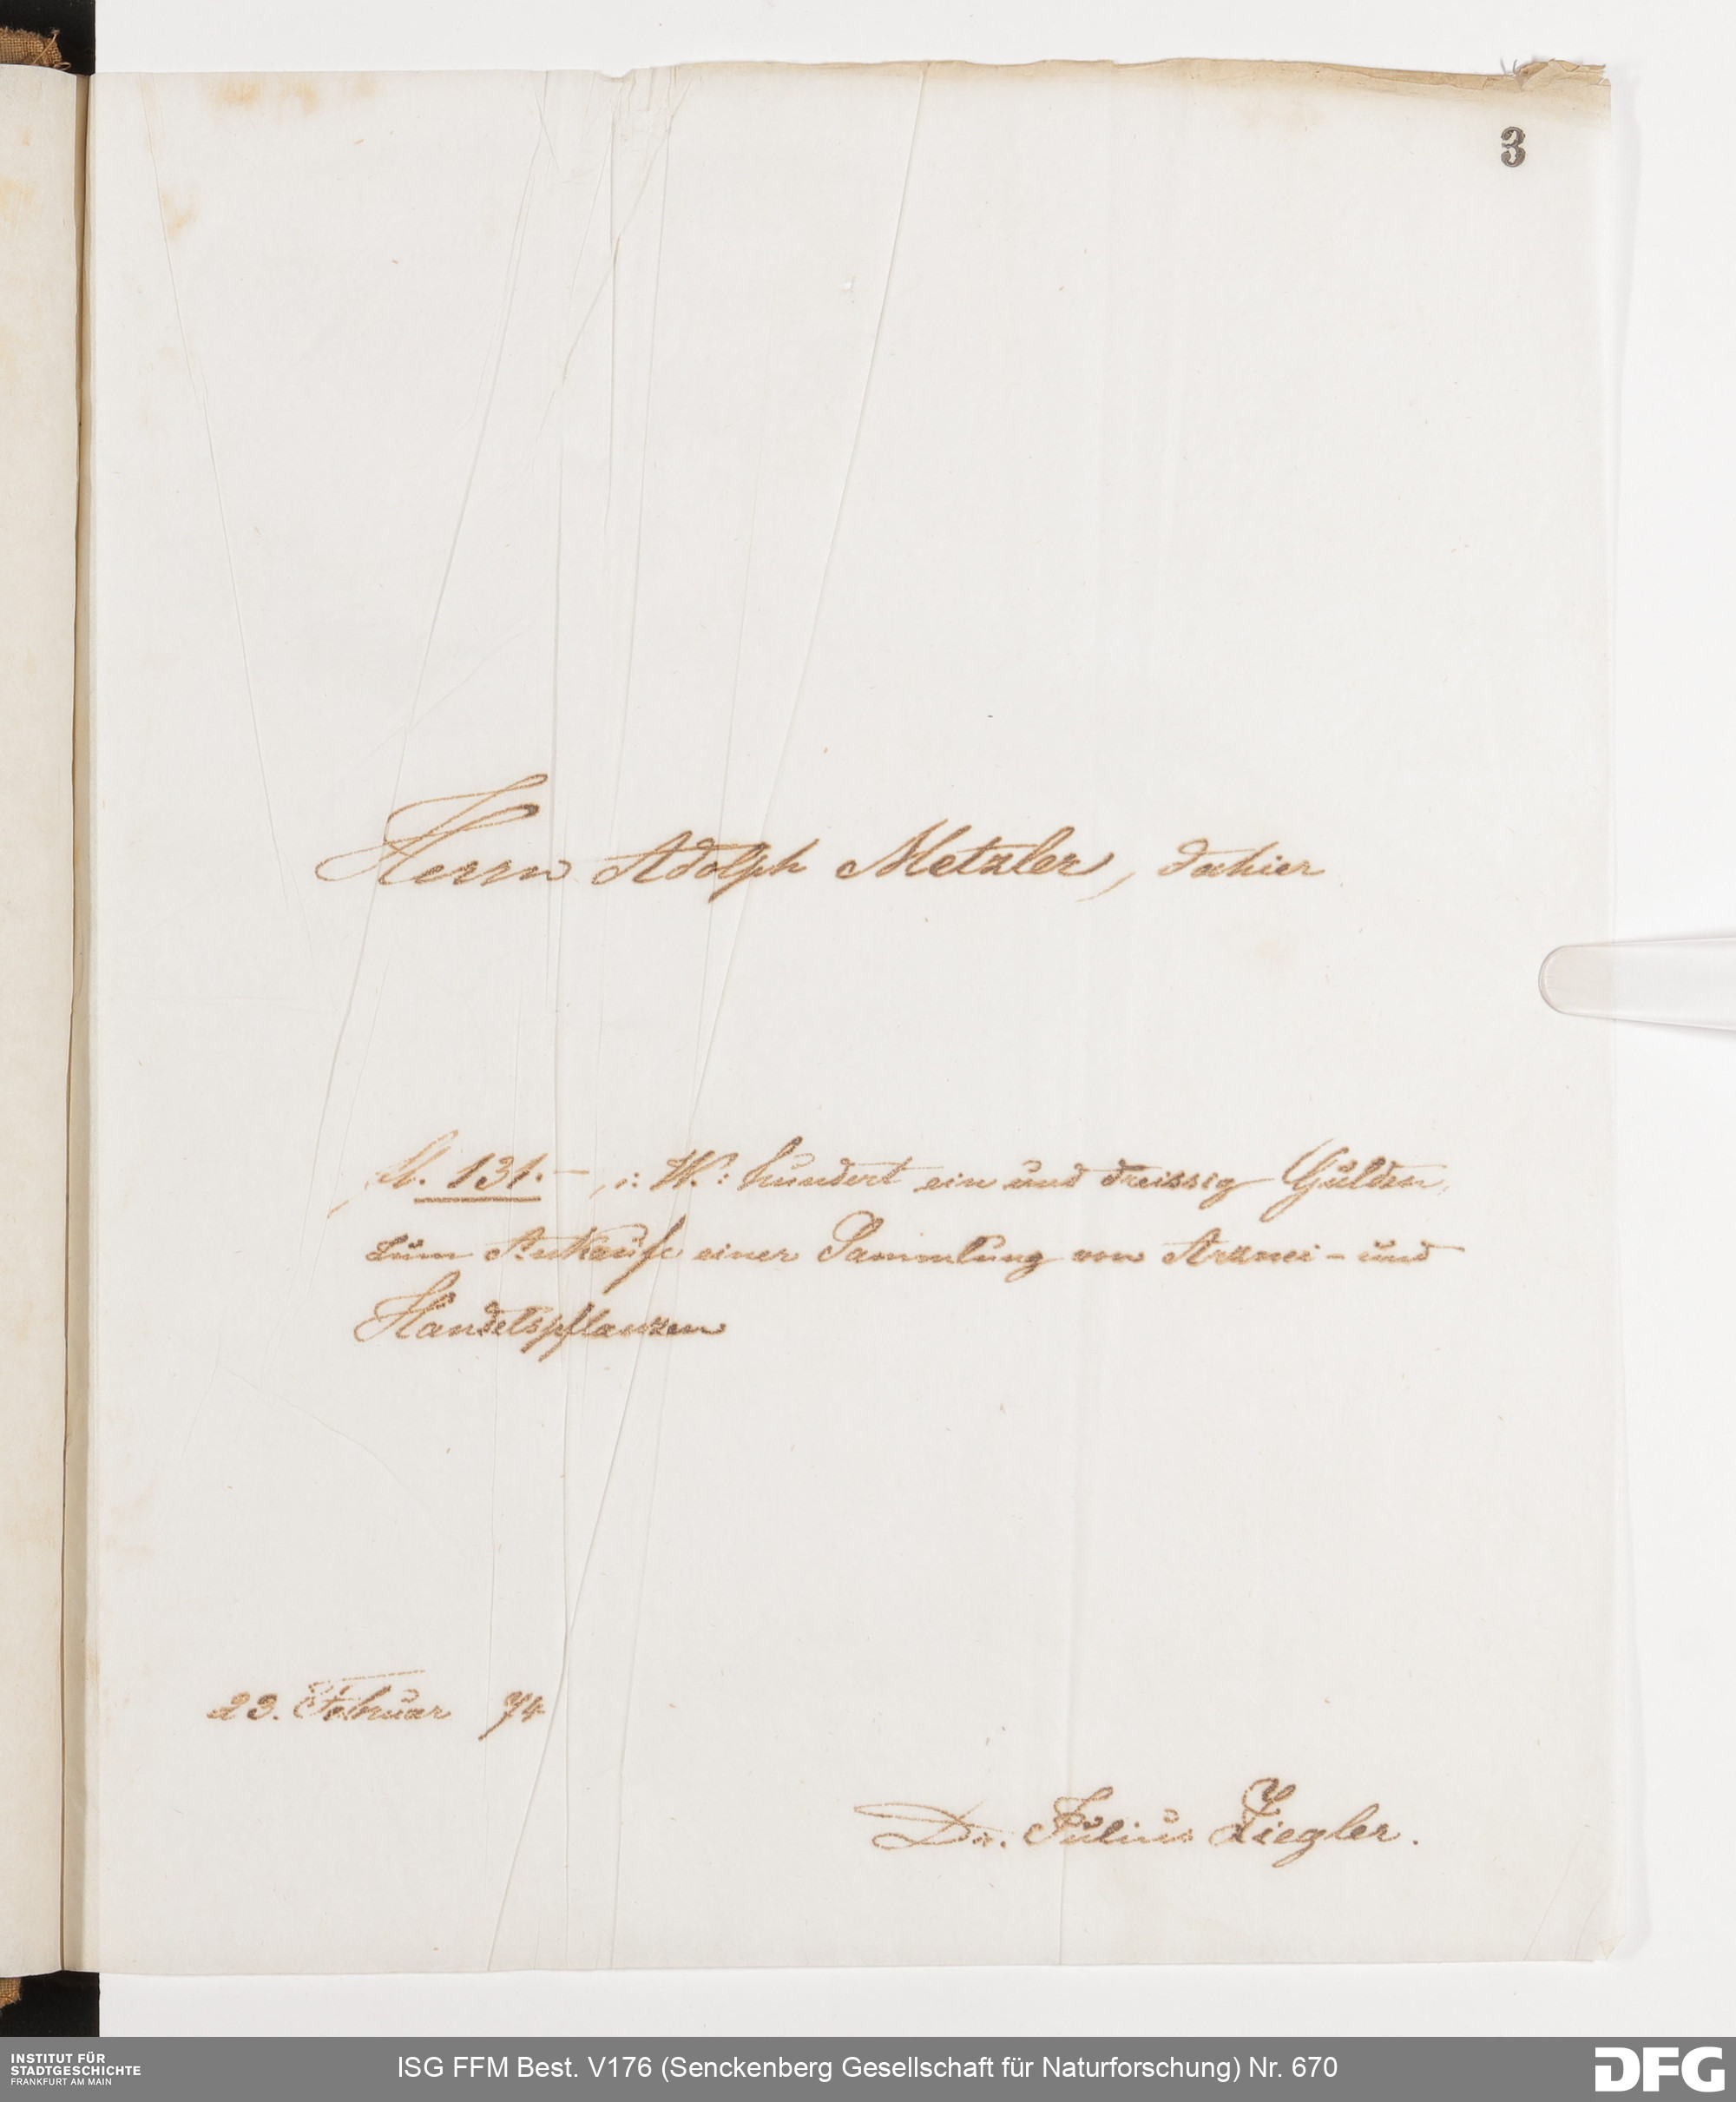 3
Herrn Adolph Metzler, dahier
fl. 131.—, i: W.: hundert ein und dreissig Gulden,
zum Ankaufe einer Sammlung von Arznei- und
Handelspflanzen
23. Februar 74
Dr. Julius Ziegler.
INSTITUT FÜR
STADTGESCHICHTE
FRANKFURT AM MAIN
ISG FFM Best. V176 (Senckenberg Gesellschaft für Naturforschung) Nr. 670
DFG